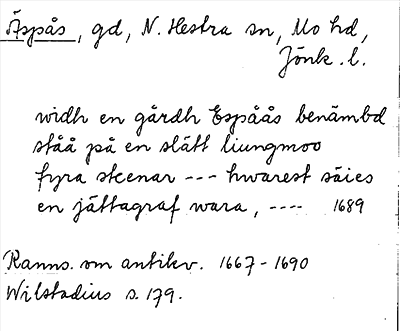 Äspås, gd, N. Hestra sn, Mo hd,
Jönk. l.
widh en gårdh Espåås benämbd
ståå på en slätt liungmoo
fyra steenar --- hwarest säies
en jättagraf wara, ---- 1689
Ranns. om antikv. 1667-1690
Wilstadius s. 179.